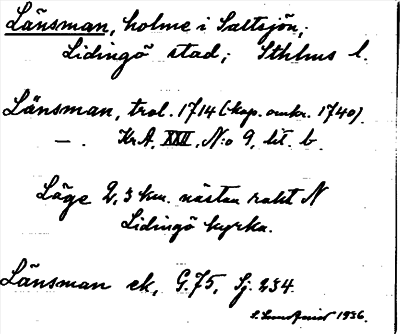 Länsman, holme i Saltsjön;
Lidingö stad; Sthlms l.
Länsman, trol. 1714 (kop. omkr. 1740).
—. Kr.A, XXII, N:o 9, lit. b.
Läge 2,3 km. nästan rakt N
Lidingö kyrka.
Länsman ek, G.75, Sj. 234.
1936.